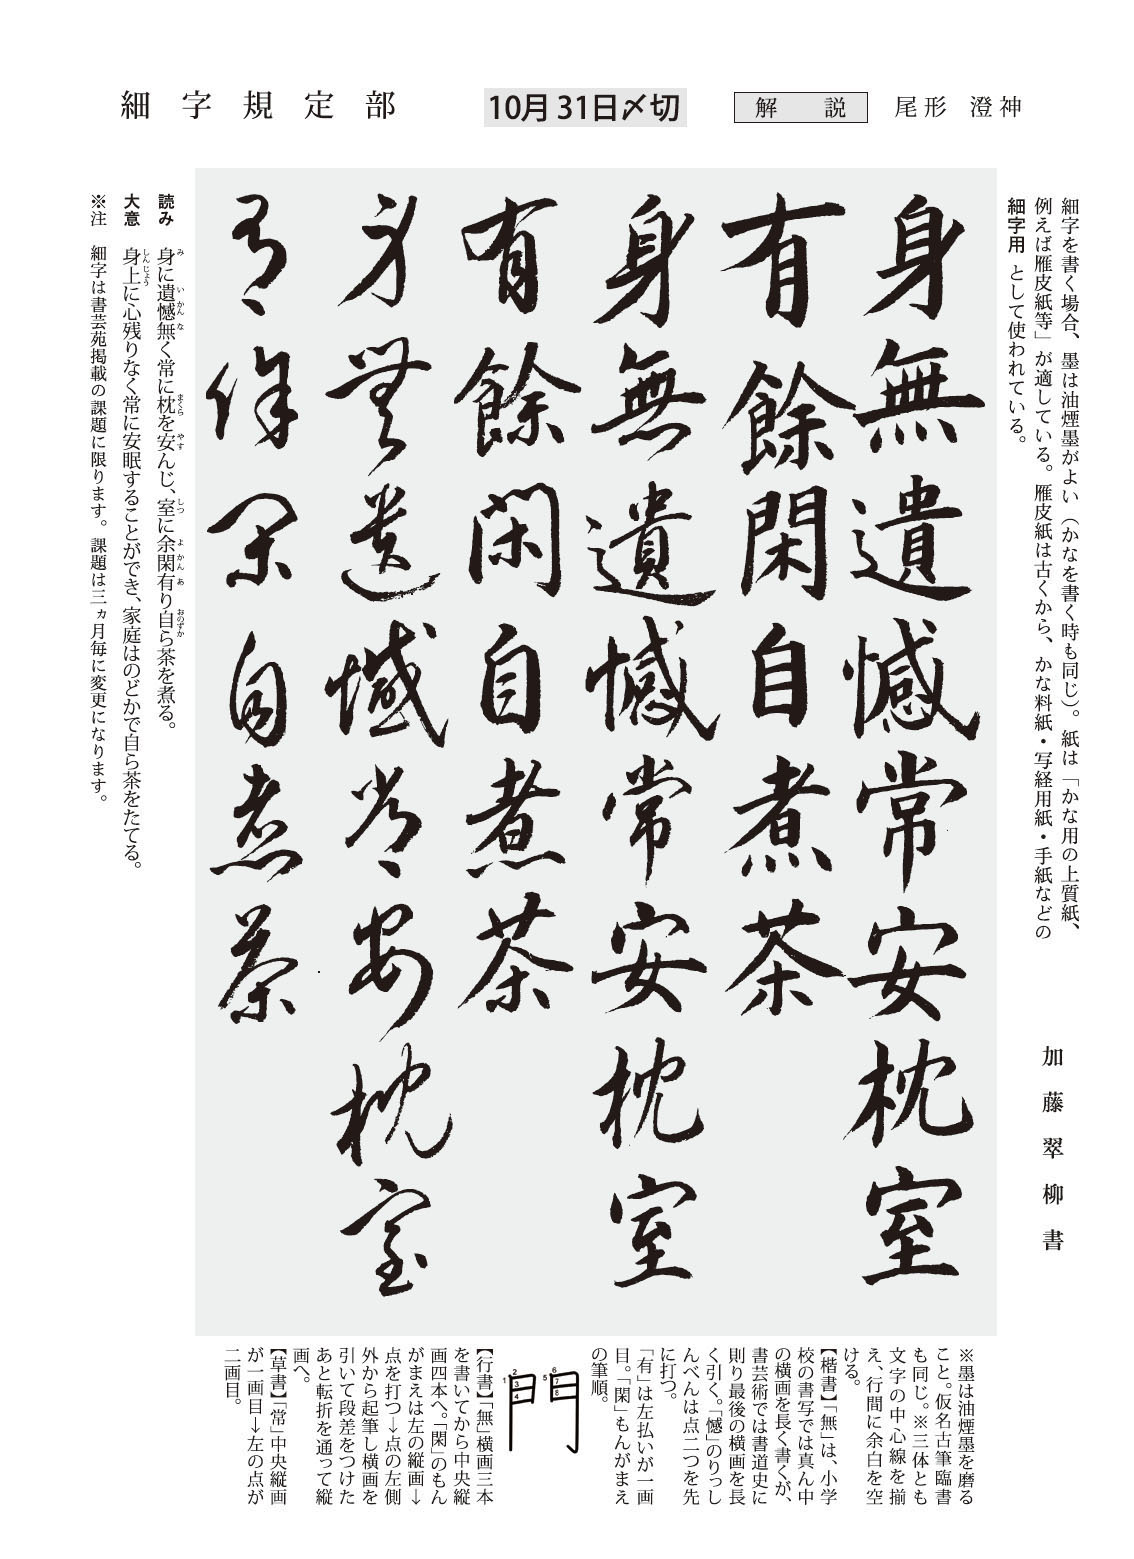 細字規定部
10月31日〆切
解説
尾形 澄神
細字を書く場合、墨は油煙墨がよい（かなを書く時も同じ）。紙は「かな用の上質紙、
例えば雁皮紙等」が適している。雁皮紙は古くから、かな料紙・写経用紙・手紙などの
細字用 として使われている。
加藤翠柳書
身無遺憾常安枕室
有餘閑自煮茶
身無遺憾常安枕室
有餘閑自煮茶
身無遺憾常安枕室
有餘閑自煮茶
読み 身に遺憾無く常に枕を安んじ、室に余閑有り自ら茶を煮る。
み いかんな まくら やす しつ よかんあ おのずか
大意 身上に心残りなく常に安眠することができ、家庭はのどかで自ら茶をたてる。
しんじょう
※注 細字は書芸苑掲載の課題に限ります。課題は三ヵ月毎に変更になります。
※墨は油煙墨を磨る
こと。仮名古筆臨書
も同じ。※三体とも
文字の中心線を揃
え、行間に余白を空
ける。
【楷書】「無」は、小学
校の書写では真ん中
の横画を長く書くが、
書芸術では書道史に
則り最後の横画を長
く引く。「憾」のりっし
んべんは点二つを先
に打つ。
「有」は左払いが一画
目。「閑」もんがまえ
の筆順。
門
1 2 3 4 5 6 7 8
【行書】「無」横画三本
を書いてから中央縦
画四本へ。「閑」のもん
がまえは左の縦画→
点を打つ→点の左側
外から起筆し横画を
引いて段差をつけた
あと転折を通って縦
画へ。
【草書】「常」中央縦画
が一画目→左の点が
二画目。